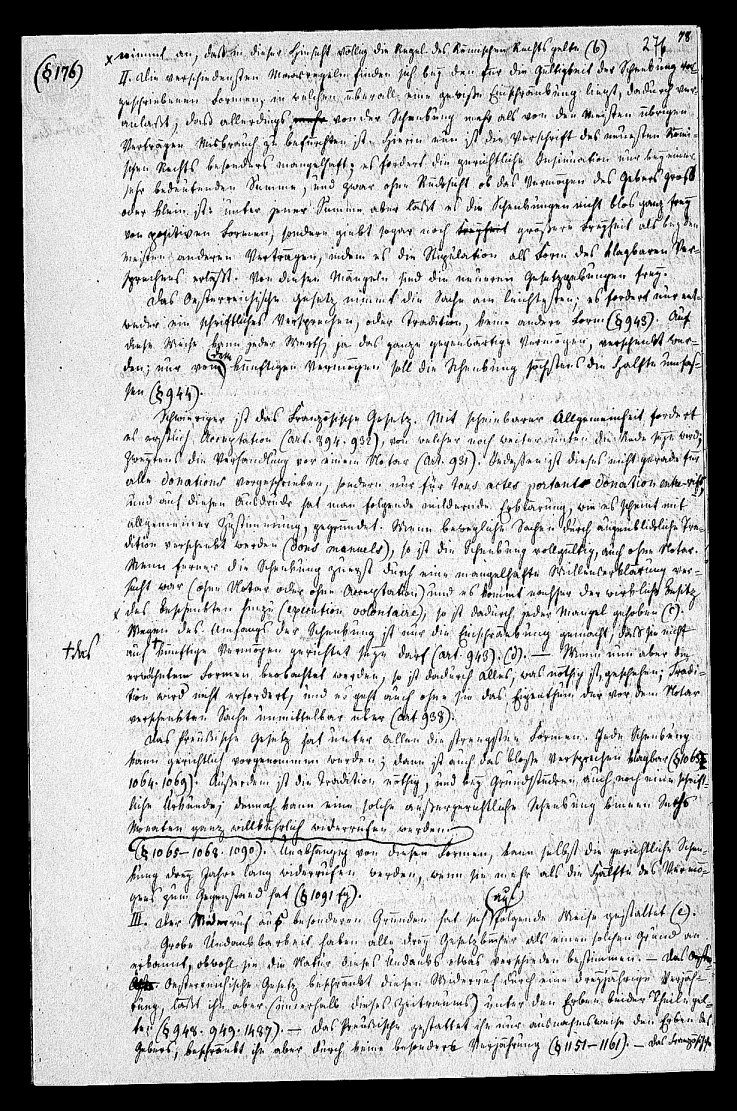 78
276
(§176)
x nimmt an, daß in dieser Hinsicht völlig die Regel des Römischen Rechts gelte (b)
II. Die verschiedensten Maasregeln finden sich bey den für die Gültigkeit der Schenkung vor-
geschriebenen Formen, in welchen überall eine gewisse Einschränkung liegt, dadurch ver-
anlaßt, daß allerdings von der Schenkung mehr als von den meisten übrigen
Verträgen Misbrauch zu befürchten ist. Hierin nun ist die Vorschrift des neuesten Römi-
schen Rechts besonders mangelhaft; es fordert die gerichtliche Insinuation nur bey einer
sehr bedeutenden Summe, und zwar ohne Rücksicht ob das Vermögen des Gebers groß
oder klein ist: unter jener Summe aber läßt es die Schenkungen nicht blos ganz frey
von positiven Formen, sondern giebt sogar noch größere Freyheit als bey den
meisten anderen Verträgen, indem es die Stipulation als Form des klagbaren Ver-
sprechens erläßt. Von diesen Mängeln sind die neueren Gesetzgebungen frey.
Das Oesterreichische Gesetz nimmt die Sache am leichtesten; es fordert nur ent-
weder ein schriftliches Versprechen, oder Tradition, keine andere Form (§943). Auf
diese Weise kann jeder Werth, ja das ganze gegenwärtige Vermögen, verschenkt wer-
den; nur vom künftigen Vermögen soll die Schenkung höchstens die Hälfte umfas-
sen (§944).
Schwieriger ist das Französische Gesetz. Mit scheinbarer Allgemeinheit fordert
es erstlich Acceptation (art. 894. 932), von welcher noch weiter unten die Rede seyn wird;
zweytens die Verhandlung vor einem Notar (art. 931). Indessen ist dieses nicht gerade für
alle donations vorgeschrieben, sondern nur für tous actes portants donation entre vifs,
und auf diesen Ausdruck hat man folgende mildernde Erklärung, wie es scheint mit
allgemeiner Zustimmung, gegründet. Wenn bewegliche Sachen durch augenblickliche Tra-
dition verschenkt werden (dons manuels), so ist die Schenkung vollgültig, auch ohne Notar.
Wenn ferner die Schenkung zuerst durch eine mangelhafte Willenserklärung ver-
sucht war (ohne Notar oder ohne Acceptation) und es kommt nachher der wirkliche Besitz
des Beschenkten hinzu (execution volontaire), so ist dadurch jeder Mangel gehoben (c).
x Wegen des Umfangs der Schenkung ist nur die Einschränkung gemacht, daß sie nicht
† das
auf † künftige Vermögen gerichtet seyn darf (art. 943). (d). — Wenn nun aber die
erwähnten Formen beobachtet werden, so ist dadurch Alles, was nöthig ist, geschehen; Tradi-
tion wird nicht erfordert, und es geht auch ohne sie das Eigenthum der vor dem Notar
verschenkten Sache unmittelbar über (art 938).
Das Preußische Gesetz hat unter allen die strengsten Formen. Jede Schenkung
kann gerichtlich vorgenommen werden; dann ist auch das bloße Versprechen klagbar (§1063
1064. 1069). Außerdem ist die Tradition nöthig, und bey Grundstücken auch noch eine schrift-
liche Urkunde; dennoch kann eine solche außergerichtliche Schenkung binnen Sechs
Monaten ganz willkührlich widerrufen werden
(§1065–1068. 1090). Unabhängig von diesen Formen, kann selbst die gerichtliche Schen-
kung drey Jahre lang widerrufen werden, wenn sie mehr als die Hälfte des Vermö-
gens zum Gegenstand hat (§1091 fg).
III. Der Widerruf aus besonderen Gründen hat sich auf folgende Weise gestaltet (e).
Grobe Undankbarkeit haben alle drey Gesetzbücher als einen solchen Grund an-
erkannt, obwohl sie die Natur dieses Undanks etwas verschieden bestimmen. — Das
Oesterreichische Gesetz beschränkt diesen Widerruf durch eine dreyjährige Verjäh-
rung, läßt ihn aber (innerhalb dieses Zeitraums) unter den Erben beider Theile gel-
ten (§948. 949. 1487). — Das Preußische gestattet ihn nur ausnahmsweise den Erben des
Gebers, beschränkt ihn aber durch keine besondere Verjährung (§1151–1161). — Das Französische